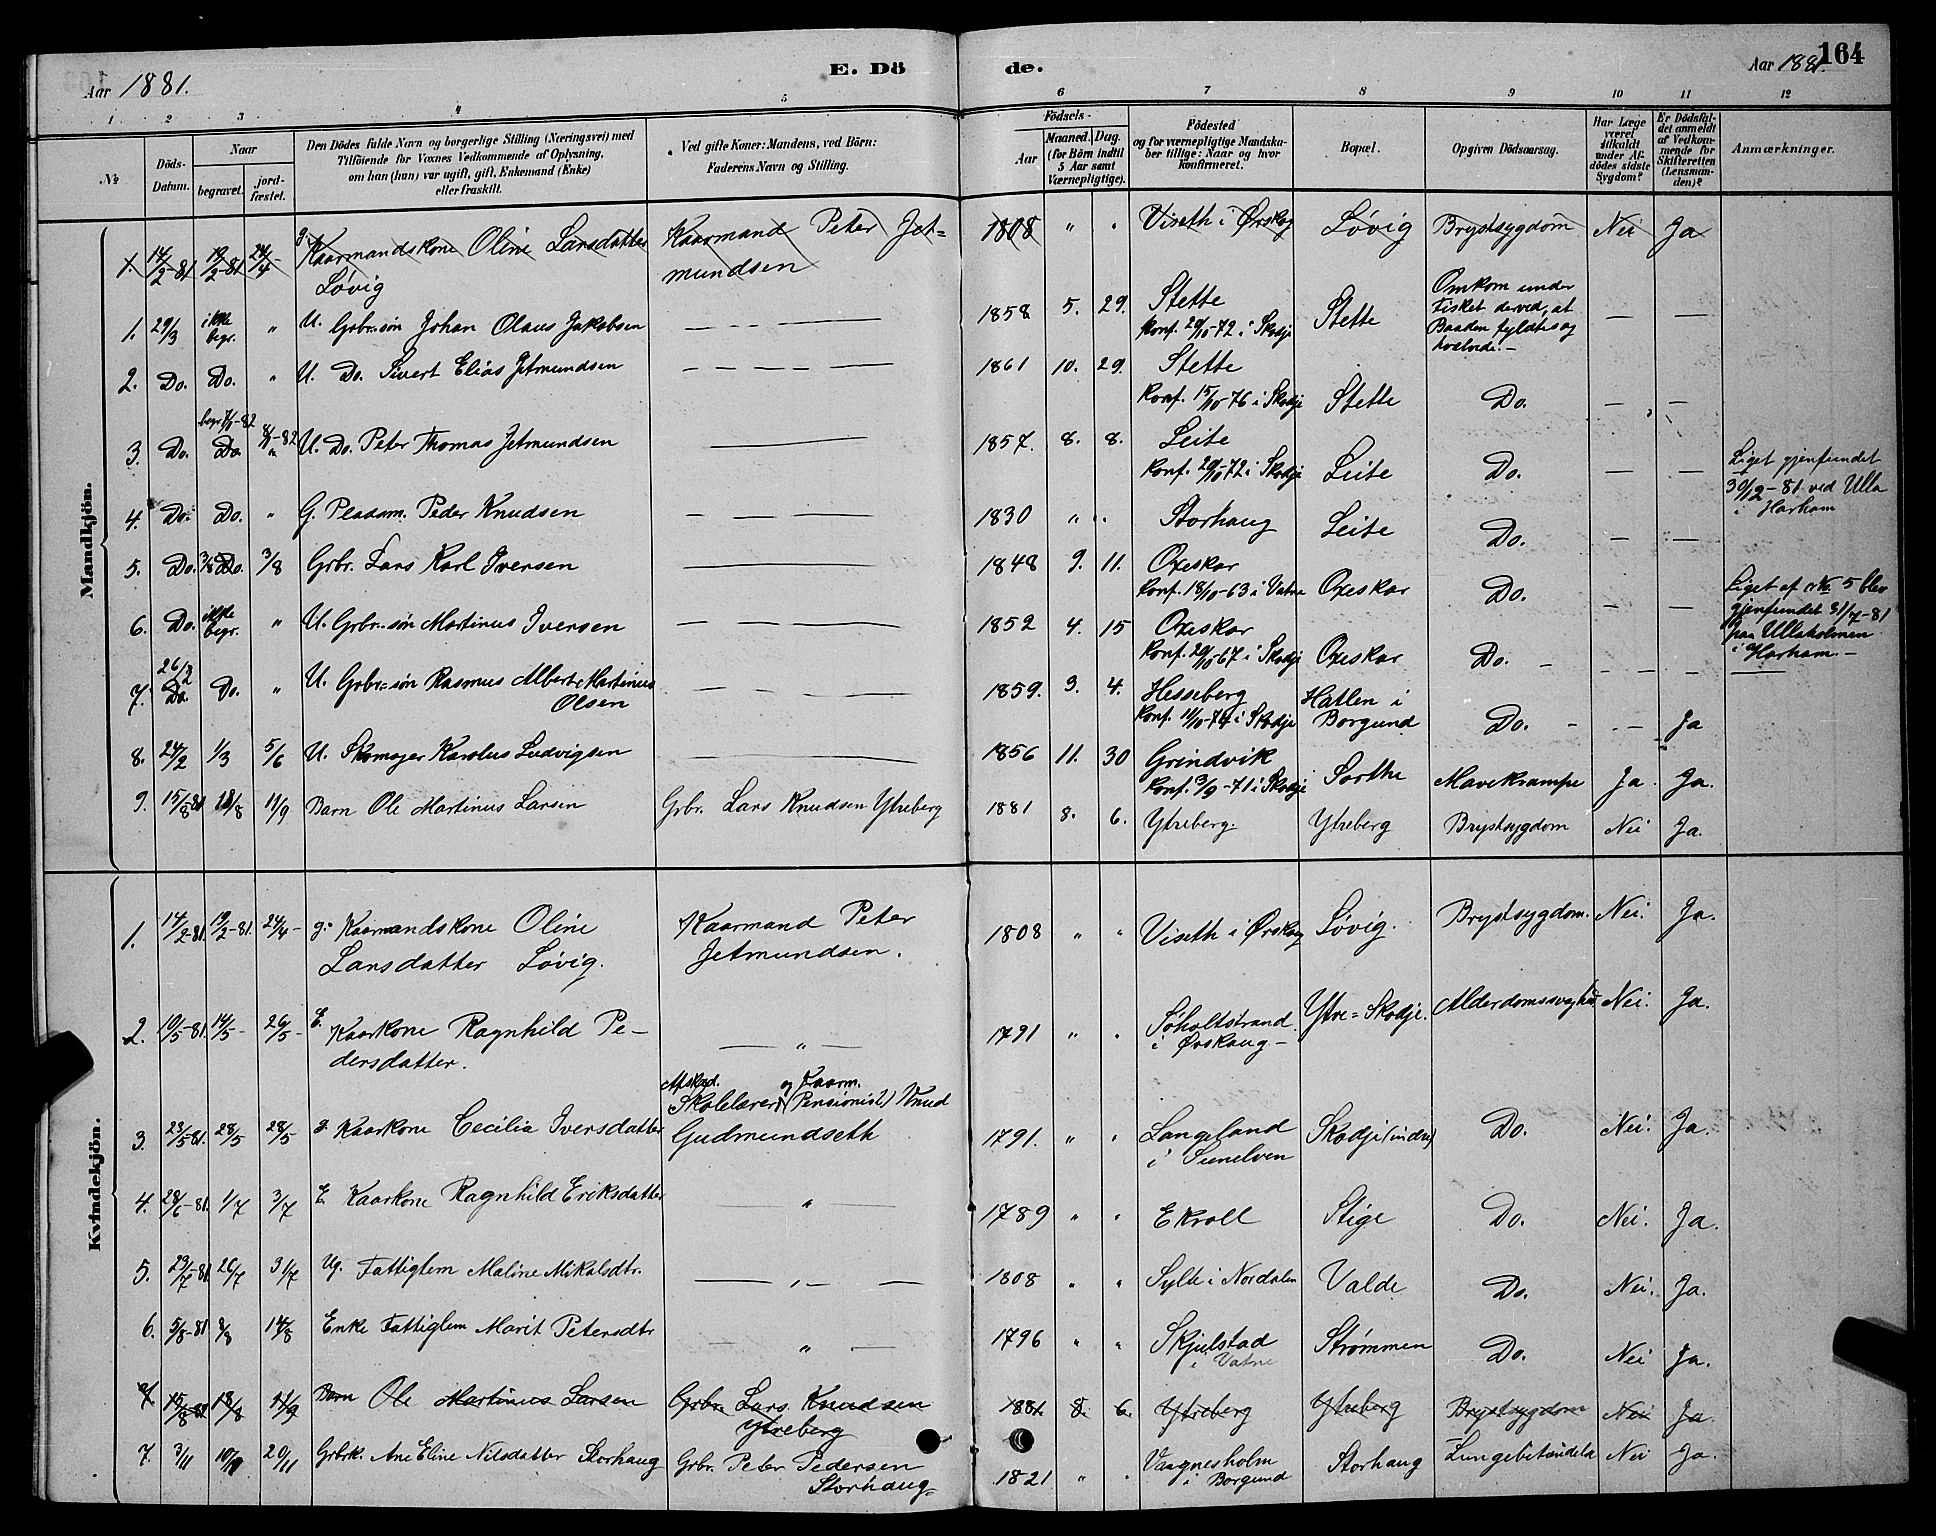 Aar 1881. E. Dö de. Aar 1881. 164
1 2 3 4 5 6 7 8 9 10 11 12
№
Döds-Datum.
Naar
begravet.
jord-fæstet.
Den Dödes fulde Navn og borgerlige Stilling (Næringsvei) med
Tilföiende for Voxnes Vedkommende af Oplysning,
om han (hun) var ugift, gift, Enkemand (Enke)
eller fraskilt.
Ved gifte Koner: Mandens, ved Börn:
Faderens Navn og Stilling.
Födsels-
Aar
Maaned. Dag.
(for Börn indtil
5 Aar samt
Værnepligtige).
Födested
og for værnepligtige Mandska-
ber tillige: Naar og hvor
konfirmeret.
Bopæl.
Opgiven Dödsaarsag.
Har Læge
været
tilkaldt
under Af-
dödes sidste
Sygdom?
Er Dödsfal-
det anmeldt
af Vedkom-
mende for
Skifteretten
(Lensman-
den)?
Anmærkninger.
Mandkjön.
1. 14/2-81 19/2-81 24/4- g. Kaarmandskone Oline Larsdatter Kaarmand Peter Jet- 1808 " " Viseth i Ørskog Løvig Brystsygdom Nei Ja
Løvig mundsen
1. 29/3 ikke begr. " U. Grbr.søn Johan Olaus Jakobsen — — — 1858 5. 29. Stette Stette Omkom under
Konf. 20/10-72 i Skodje Fisket derved, at
Baaden fyldtes og
hvelvede.- — —
2. Do. Do. " U. Do. Sivert Elias Jetmundsen — — — 1861 10. 29. Stette
Konf. 15/10-76 i Skodje Stette Do. — —
begr. 7/1-82 8/1-82
3. Do. Do. " U. Do. Peter Thomas Jetmundsen — 1857. 8. 8. Leite
Konf. 20/10-72 i Skodje Leite Do. — — Liget gjenfundet
30/12-81 ved Ulla
i Harham
4. Do. Do. " G. Pladsm. Peder Knudsen — — — 1830 " " Storhaug Leite Do. — —
5. Do. 3/8 Do. 3/8 Grbr. Lars Karl Iversen — 1848 9. 11. Oxeskar
Konf. 18/10-63 i Vatne Oxeskar Do. — — Liget af No 5 blev
gjenfundet 31/7-81
paa Ullaholmen
i Harham.-
6. Do. ikke begr. " U. Grbr.søn Martinus Iversen — — — 1852 4. 15 Oxeskar
Konf. 20/10-67 i Skodje Oxeskar Do. — — —
7. 26/2 Do. Do. " U. Grbr=søn Rasmus Albert Martinus — — — 1859. 3. 4. Hesseberg Hatlen i
Olsen Konf. 11/10-74 i Skodje Borgund Do. — — Ja
8. 24/2 1/3 5/6 U. Skomager Karolus Ludvigsen — 1856 11. 30 Grindvik
Konf. 3/9-71 i Skodje Sorthe Mavekrampe Ja. Ja.
9. 15/8 81 18/8 11/9 Barn Ole Martinus Larsen Grbr. Lars Knudsen Ytreberg 1881 8. 6. Ytreberg. Ytreberg Brystsygdom Nei Ja.
Kvindekjön.
1. 14/2-81. 19/2-81. 24/4- g. Kaarmandskone Oline Kaarmand Peter 1808 " " Viseth i Ørskog Løvig. Brystsygdom. Nei. Ja.
Larsdatter Løvig. Jetmundsen.
2. 10/5-81. 14/5- 26/5- E. Kaarkone Ragnhild Pe- — " — 1791 " " Søholtstrand Ytre=Skodje. Alderdomssvaghed Nei. Ja.
dersdatter. i Ørskaug-
Afsked. og Kaarm.
Skolelærer (Pensionist) Knud
3. 23/5 81. 28/5 28/5 g. Kaarkone Cecilia Iversdatter Gudmundseth 1791. " " Langeland Skodje (indre) Do. Nei. Ja.
i Sunelven
4. 28/6-81. 1/7 3/7 E. Kaarkone Ragnhild Eriksdatter — " — 1789 " " Ekroll Stige Do. Nei. Ja.
5. 23/7-81. 26/7 31/7 Ug. Fattiglem Maline Mikalsdtr. — " — — 1808 " " Sylte i Nordalen Valde Do. Nei. Ja.
6. 5/8-81 8/8 14/8 Enke Fattiglem Marit Petersdtr — " — 1796 " " Skjelstad Strømmen Do. Nei Ja.
i Vatne
7. 15/8 81. 18/8 11/9 Barn Ole Martinus Larsen Grbr. Lars Knudsen 1881. 8. 6. Ytreberg Ytreberg Brystsygdom Nei Ja.
Ytreberg
7. 3/11 10/11 20/11 Grbrk. Ane Eline Nilsdatter Storhaug Grbr. Peter Pedersen 1821 " " Vaagnesholm Storhaug Lungebetændelse Nei Ja.
Storhaug= i Borgund